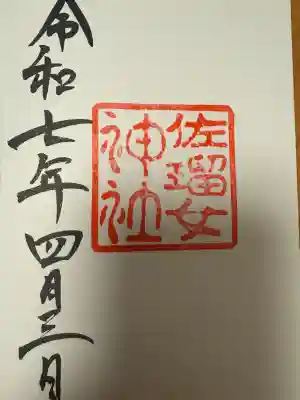 佐瑠女
神社
令和七年四月三日